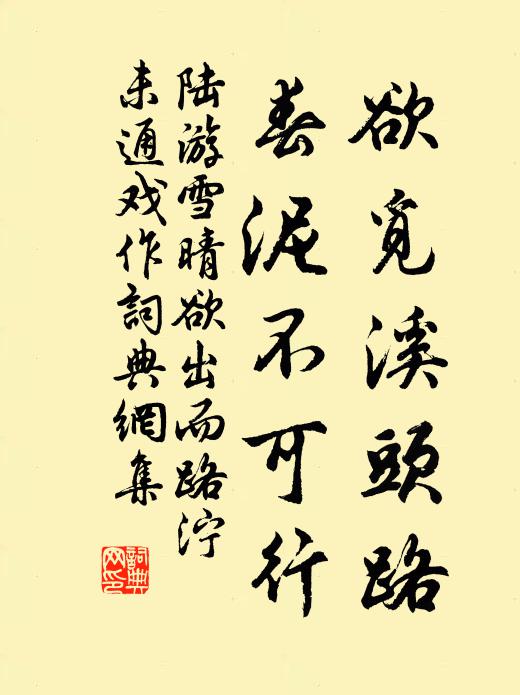 欲覓溪頭路
春泥不可行
陆游雪晴欲出而路泞
未通戏作詞典網集
詞典网印